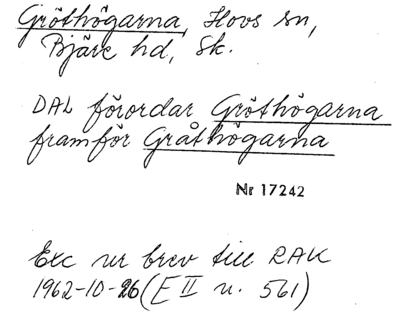 Gröthögarna, Hovs sn,
Bjäre hd, Sk.
DAL förordar Gröthögarna
framför Gråthögarna
Nr 17242
Exc ur brev till RAK
1962-10-26 (E II u. 561)